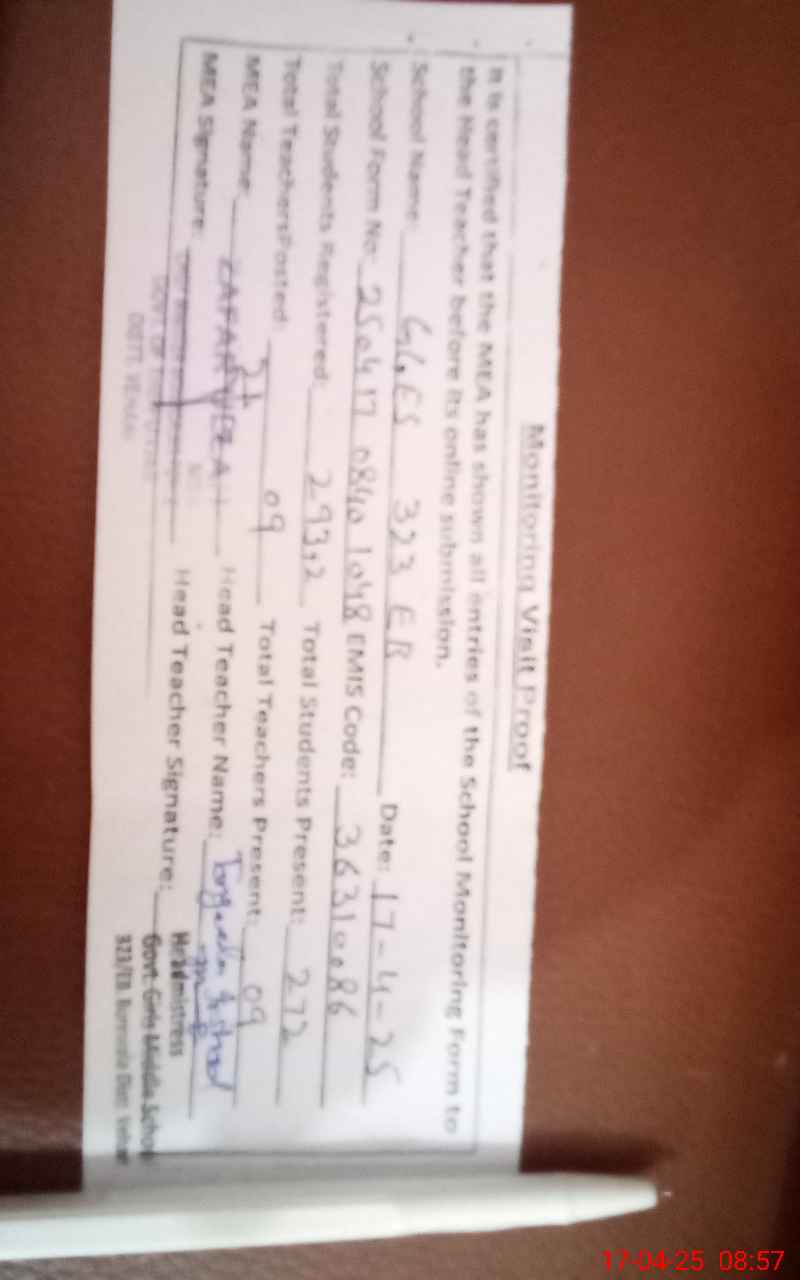 Monitoring Visit Proof
It is certified that the MEA has shown all entries of the School Monitoring Form to
the Head Teacher before its online submission.
School Name: GGES 323 EB Date: 17-4-25
School Form No: 250417 0840 1048 EMIS Code: 36310086
Total Students Registered: 293+2 Total Students Present: 272
Total TeachersPosted: 09 Total Teachers Present: 09
MEA Name: ZAFAR Head Teacher Name:
MEA Signature: Head Teacher Signature:
Headmistress
Govt. Girls Middle School
323/EB Burewala Distt. Vehari
17-04-25 08:57